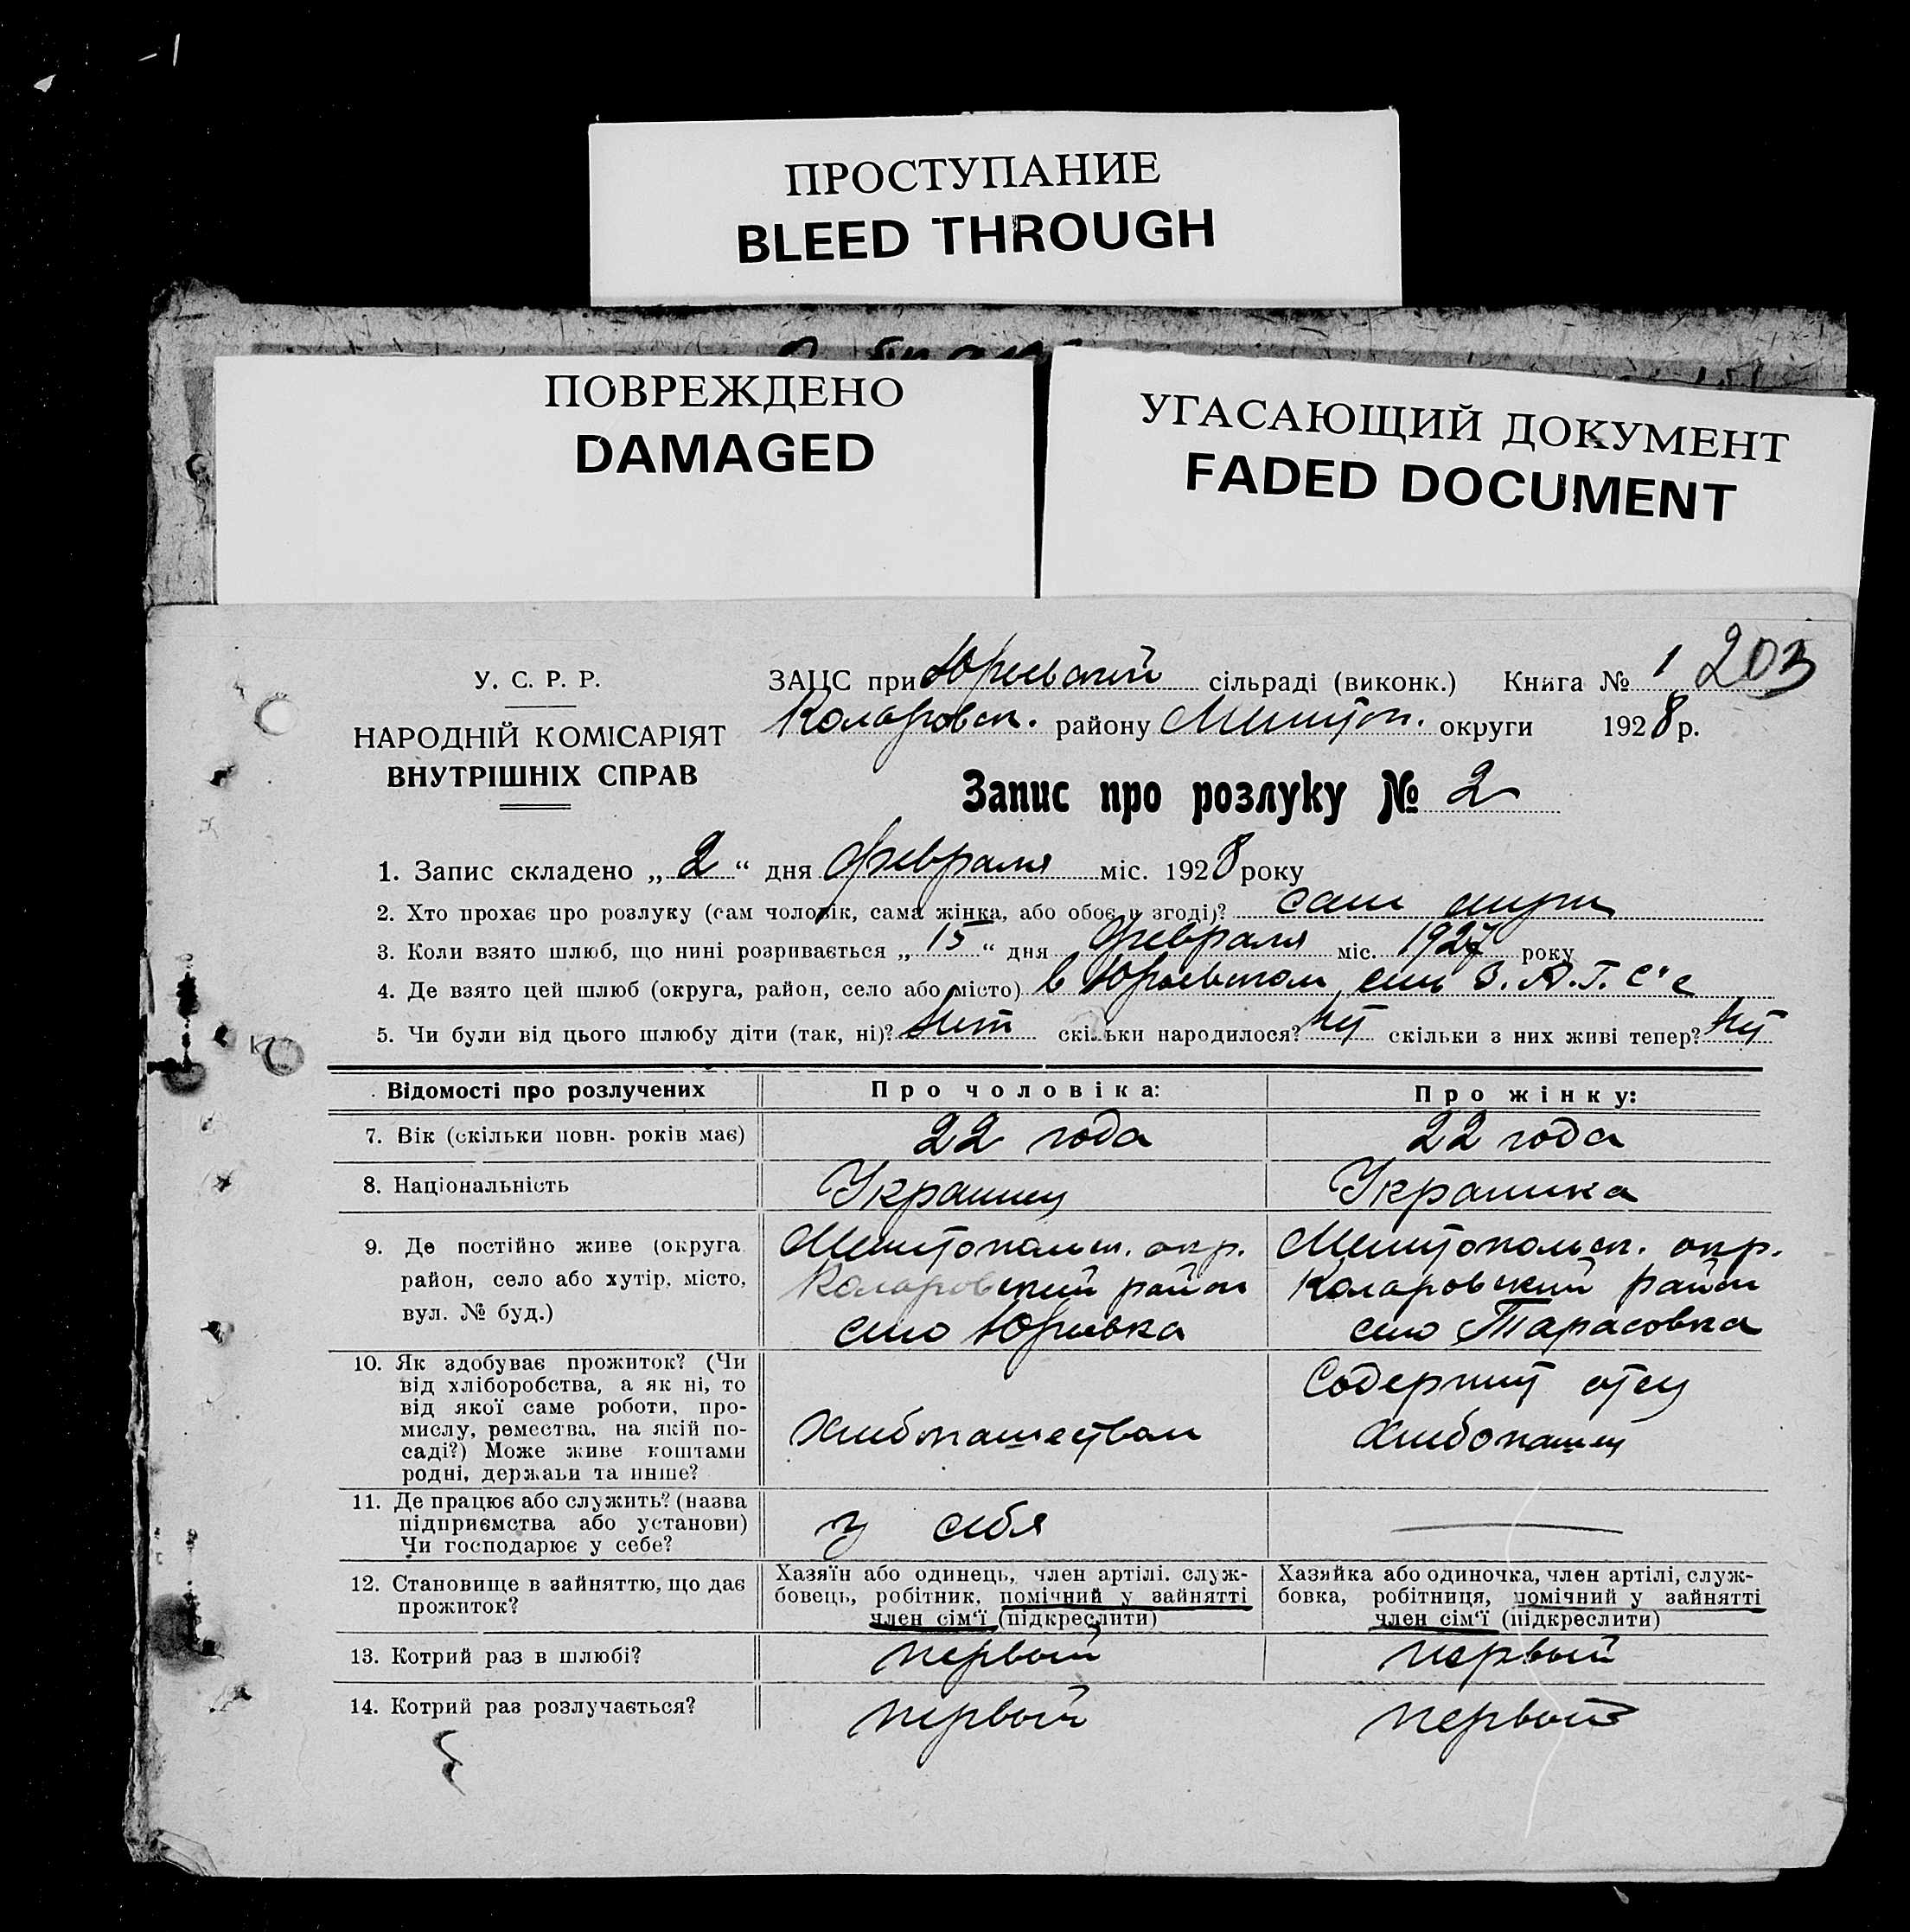 ПРОСТУПАНИЕ
BLEED THROUGH
ПОВРЕЖДЕНО
DAMAGED
УГАСАЮЩИЙ ДОКУМЕНТ
FADED DOCUMENT
У. С. Р. Р.
НАРОДНІЙ КОМІСАРІЯТ
ВНУТРІШНІХ СПРАВ
ЗАЦС при Юрьевской сільраді (виконк.) Книга № 1 203
Коларовск. району Мелитоп. округи 1928 р.
Запис про розлуку № 2
1. Запис складено „ 2 “ дня февраля міс. 1928 року
2. Хто прохає про розлуку (сам чоловік, сама жінка, або обоє в згоді)? сам
3. Коли взято шлюб, що нині розривається „ 15 “ дня февраля міс. 1927 року
4. Де взято цей шлюб (округа, район, село або місто) в Юрьевском З.А.Г.С'е
5. Чи були від цього шлюбу діти (так, ні)? Нет скільки народилося? нет скільки з них живі тепер? нет
Відомості про розлучених Про чоловіка: Про жінку:
7. Вік (скільки повн. років має) 22 года 22 года
8. Національність Украинец Украинка
9. Де постійно живе (округа Мелитопольск. окр. Мелитопольск. окр.
район, село або хутір, місто, Коларовский район Коларовский район
вул. № буд.) село Юрьевка село Тарасовка
10. Як здобуває прожиток? (Чи
від хліборобства, а як ні, то
від якої саме роботи, про-
мислу, ремества, на якій по-
саді?) Може живе коштами
родні, держави та инше?
Хлебопашеством
Содержит отец
Хлебопашец
11. Де працює або служить? (назва
підприємства або установи)
Чи господарює у себе?
у себя
12. Становище в зайняттю, що дає
прожиток?
Хазяїн або одинець, член артілі, служ-
бовець, робітник, помічний у зайнятті
член сім‘ї (підкреслити)
Хазяйка або одиночка, член артілі, служ-
бовка, робітниця, помічний у зайнятті
член сім‘ї (підкреслити)
13. Котрий раз в шлюбі? первый первый
14. Котрий раз розлучається? первый первый